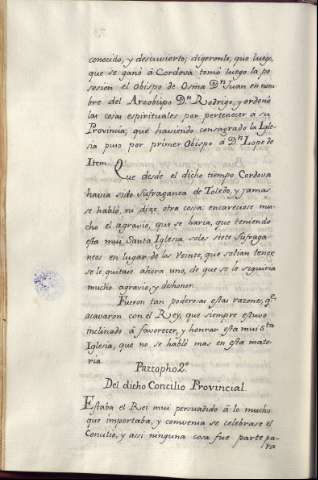 conocido, y descuvierto; digeronle, que luego,
que se ganó á Cordova tomó luego la po-
sesion el Obispo de Osma Dn. Juan en nom-
bre del Arzobispo Dn. Rodrigo, y ordenó
las cosas espirituales por pertenecer a su
Provincia; que haviendo consagrado la Igle-
sia puso por primer Obispo á Dn. Lope de
Item.
Que desde el dicho tiempo Cordova
havia sido Sufraganea de Toledo, y jamas
se habló, ni dixo otra cosa: encarecióse mu-
cho el agravio, que se haria, que teniendo
esta mui Santa Iglesia solos siete Sufraga-
neos en lugar de los veinte, que solian tener
se le quitase ahora uno, de que se le seguiria
mucho agravio, y deshonor.
Fueron tan poderosas estas razones, qe.
acavaron con el Rey, que siempre estuvo
inclinado á favorecer, y honrar esta mui Sta.
Iglesia, que no se habló mas en esta mate-
ria.
Parrapho 2º
Del dicho Concilio Provincial.
Estaba el Rei mui persuadido á lo mucho
que importaba, y convenia se celebrase el
Concilio, y assi ninguna cosa fue parte pa-
ra